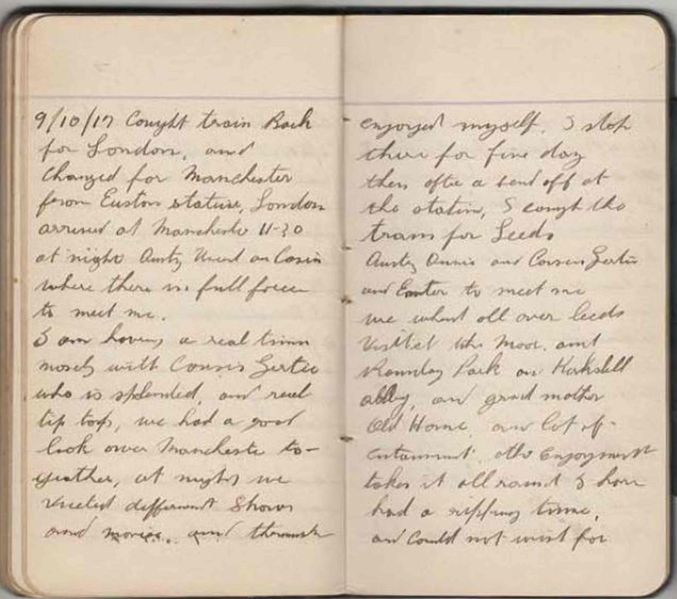 9/10/17 Cought train Back
for London, and
changed for Manchester
from Euston station, London
arrived at Manchester 11-30
at night Aunty and Cosin
where there in full force
to meet me.
I am having a real time
mosely with Cousin Gertie
who is splended, and real
tip top, we had a good
look over Manchester to-
geather, at nights we
viseted different Shows
and movies, and
enjoyed myself. I stop
there for five day
then after a send off at
the station, I caught the
train for Leeds
Aunty Annie and Cousin Gertie
and to meet me
we whent all over Leeds
Visitet the Moor, and
Roundey Park an Kirkstell
abby, and grand mother
Old Home, an lot of
entainment, othe Enjoyment
takes it all round I have
had a ripping time,
and could not wish for